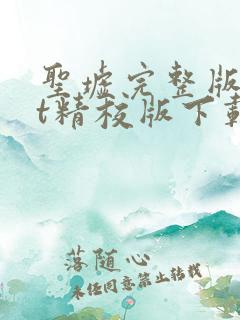 聖墟完整版
t精校版下載
落随心
未经同意禁止转载